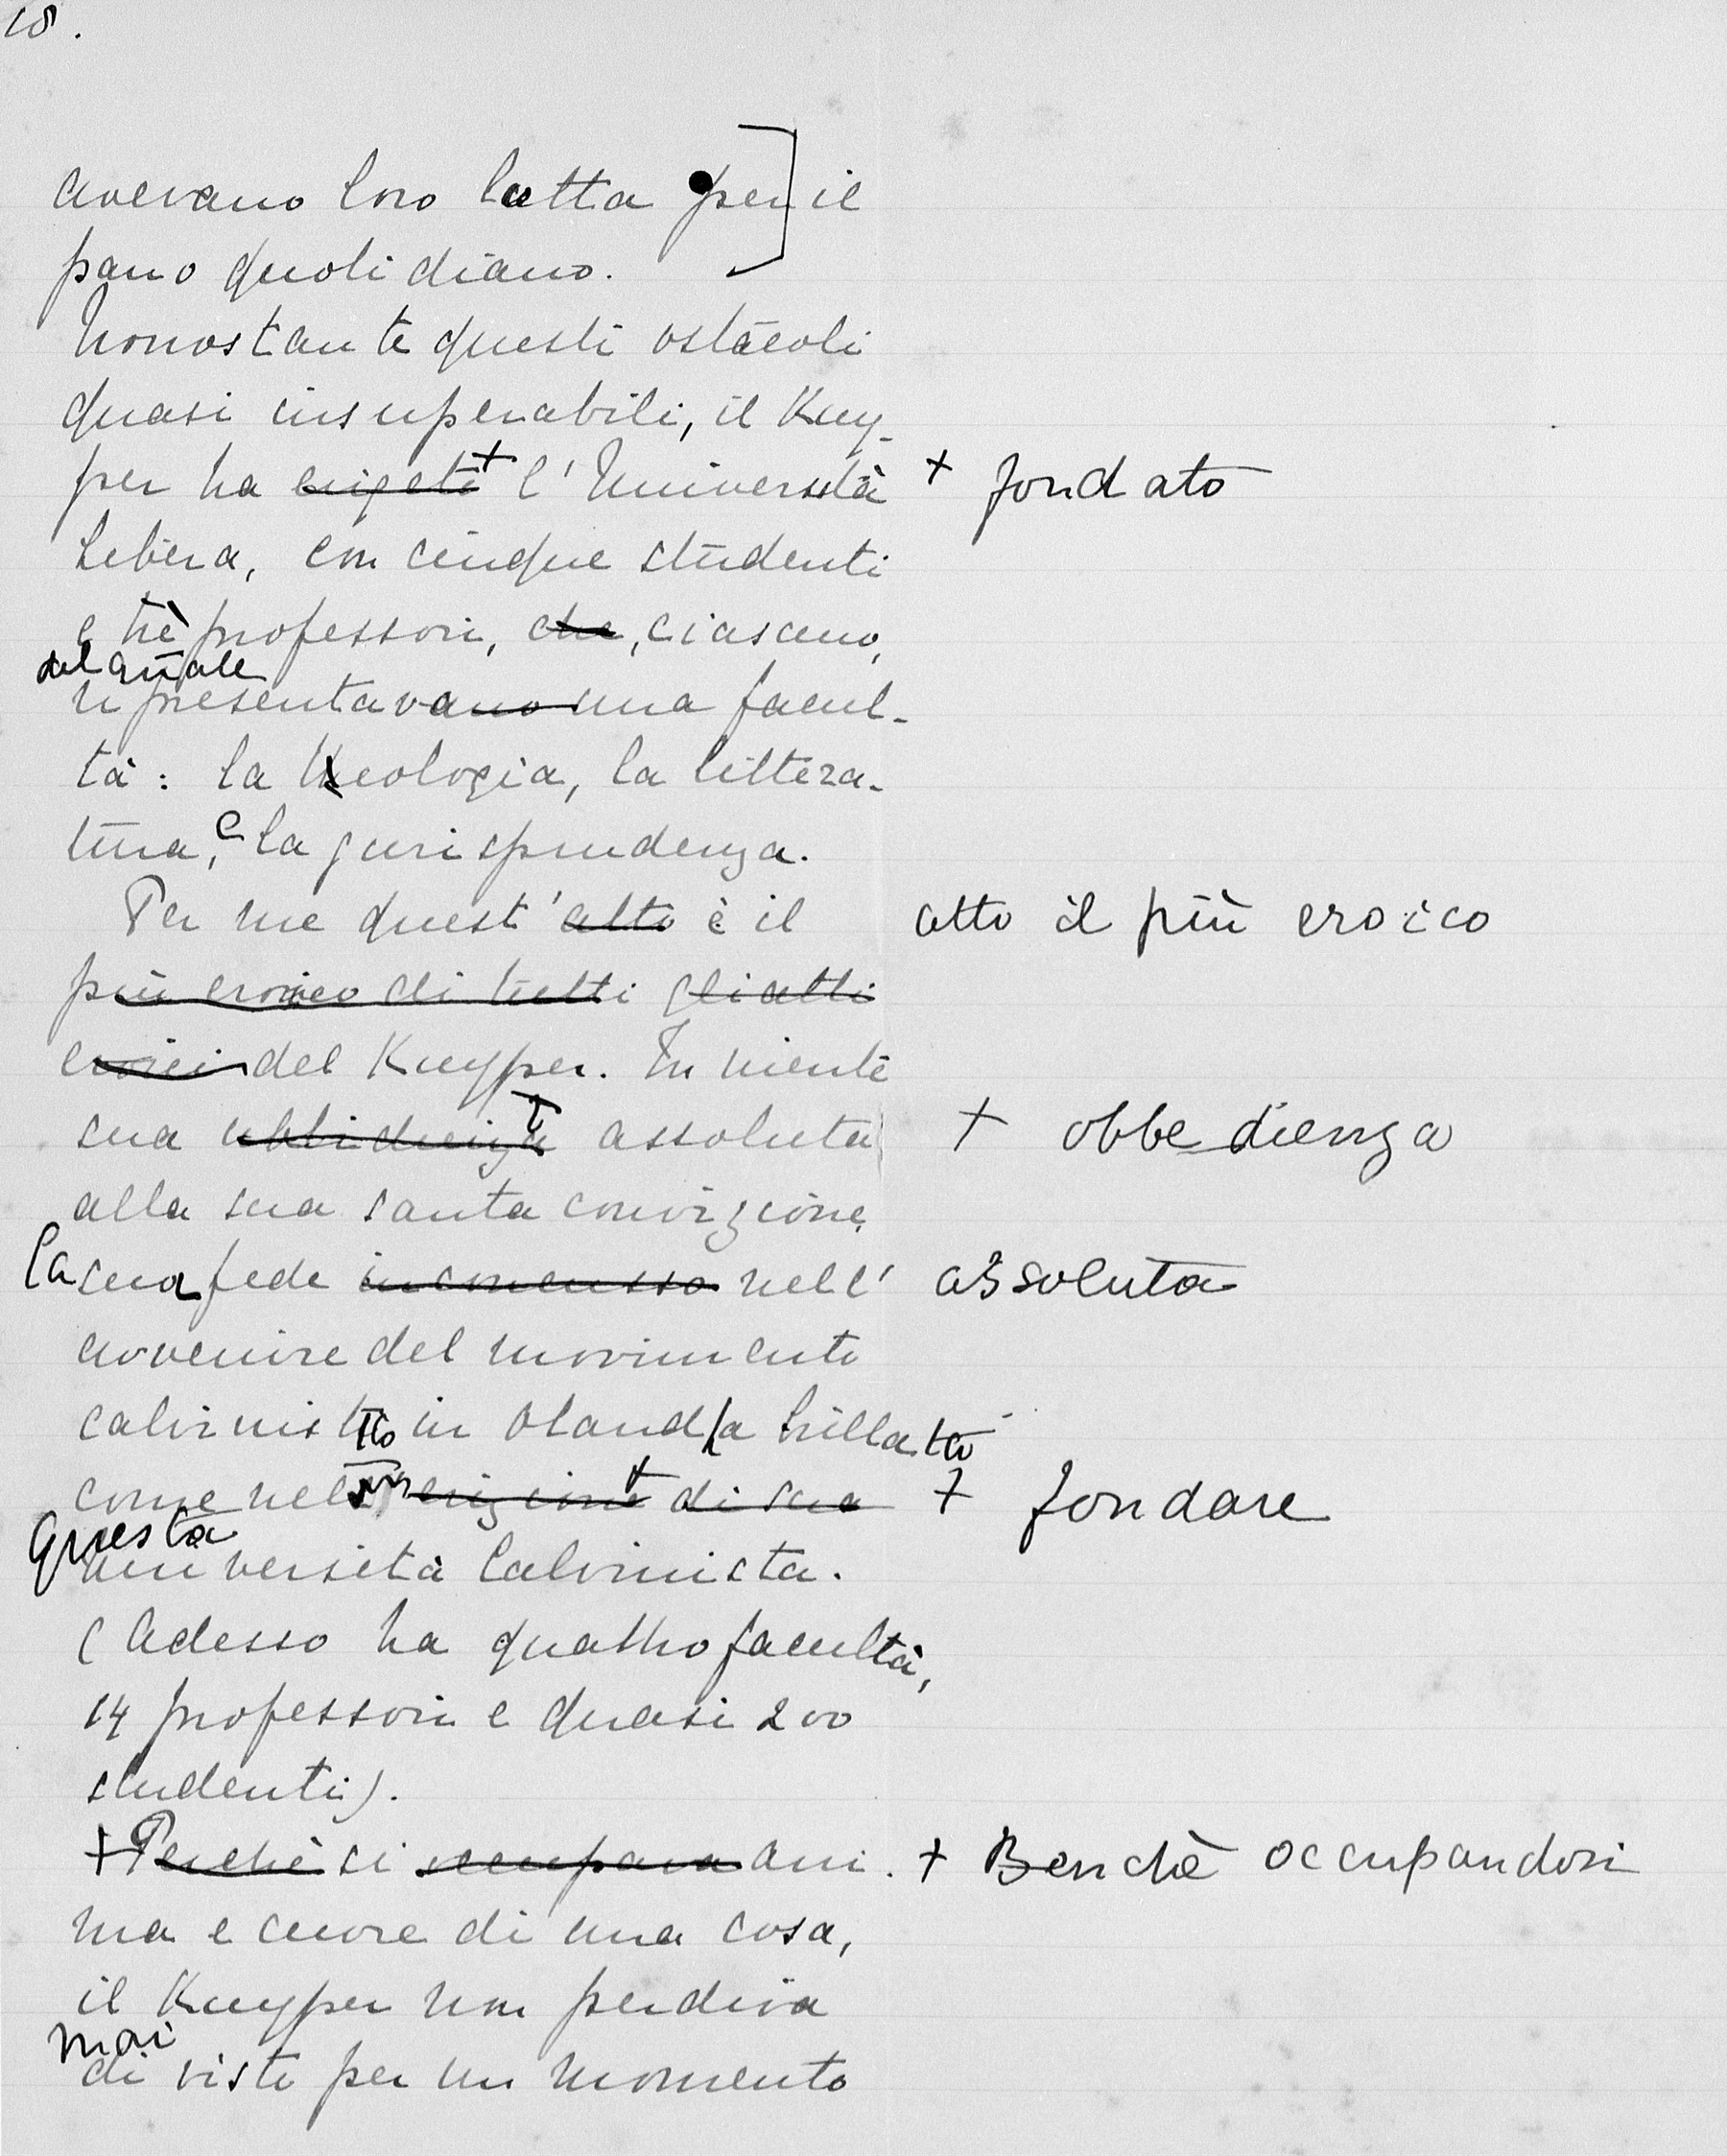 18.
avevano loro lotta per] il
pano quotidiano.
Nonostante questi ostacoli
quasi insuperabili, il Kuy-
per ha erigeto + l'Università + fondato
Libera, con cinque studenti
e trè professori, che, ciascuno,
del quale
representavano una facul-
tà: la theologia, la littera-
tura, e la jurisprudenza.
Per me quest'atto è il atto il più eroico
più eroico di tutti gli atti
eroici del Kuyper. In niente
sua assoluta + obbedienza
alla sua santa convizione
la sua fede inconcussa nell' assoluta
avvenire del movimento
calvinistico in Olanda brillato
come nell' erigione + di sua + fondare
questa
università Calvinista.
(Adesso ha quattro facultà,
14 professori e quasi 200
studenti).
+ Perchè si occupava ani- + Benchè occupandosi
ma e cuore di una cosa,
il Kuyper non perdiva
mai
di visto per un momento